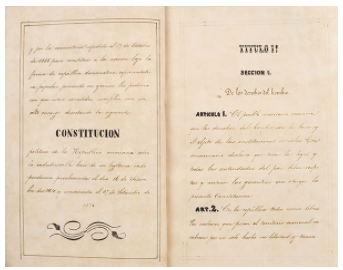 y por la convocatoria expedida el 17 de Octubre
de 1855 para constituir á la nacion bajo la
forma de república democrática, representativa
popular, poniendo en ejercicio los poderes
con que están investidos, cumplen con su
alto encargo decretando la siguiente
CONSTITUCION
política de la República mexicana sobre
la indestructible base de su legítima inde-
pendencia proclamada el dia 16 de Setiem-
bre de 1810 y consumada el 27 de Setiembre de
1821
TITULO 1º
SECCION 1.
De los derechos del hombre.
ARTICULO 1. El pueblo mexicano reconoce
que los derechos del hombre son la base y
el objeto de las instituciones sociales. En
consecuencia declara que todas las leyes y
todas las autoridades del pais deben respe-
tar y sostener las garantías que otorga la
presente Constitucion.
ART. 2. En la república todos nacen libres.
Los esclavos que pisen el territorio nacional re-
cobran por ese solo hecho su libertad y tienen